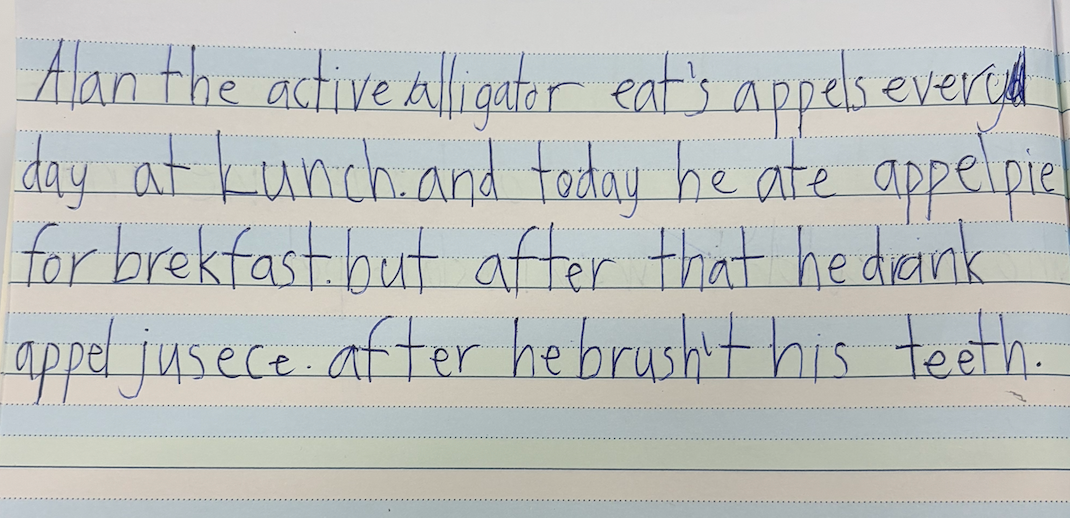 Alan the active alligator eat's appels every
day at lunch. and today he ate appel pie
for brekfast. but after that he drank
appel jusece. after he brush't his teeth.